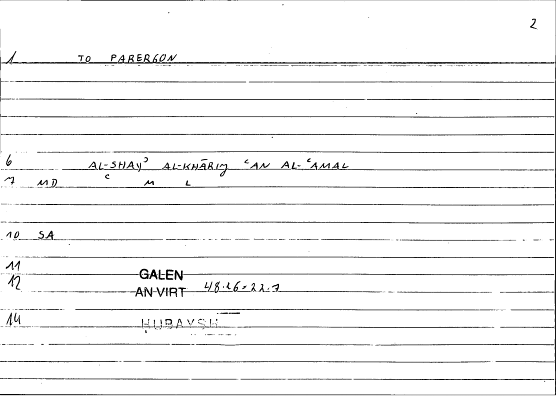 2
1 TO PARERGON
6 AL-SHAYʾ AL-KHĀRIJ ʿAN AL-ʿAMAL
7 MD ʿ M L
10 SA
11
12 GALEN
AN VIRT 48.16-22.7
14 HUBAYSH